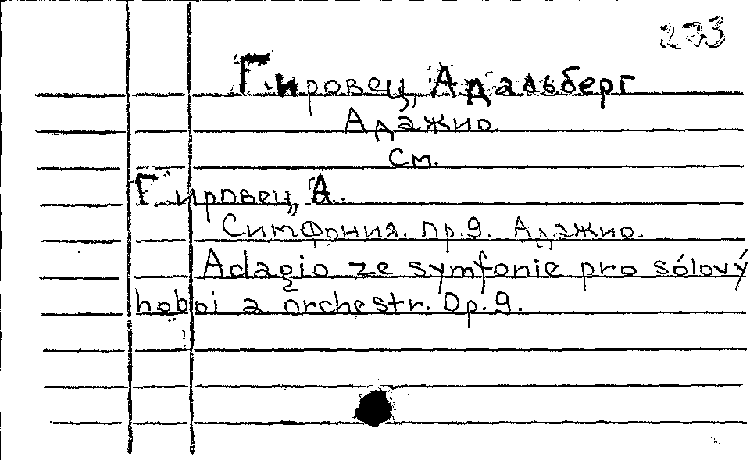 273
Гировец, Адальберг
Адажио.
см.
Гировец, А.
Симфония. Op.9. Адажио.
Adagio ze symfonie pro sólový
hoboj a orchestr. Op.9.